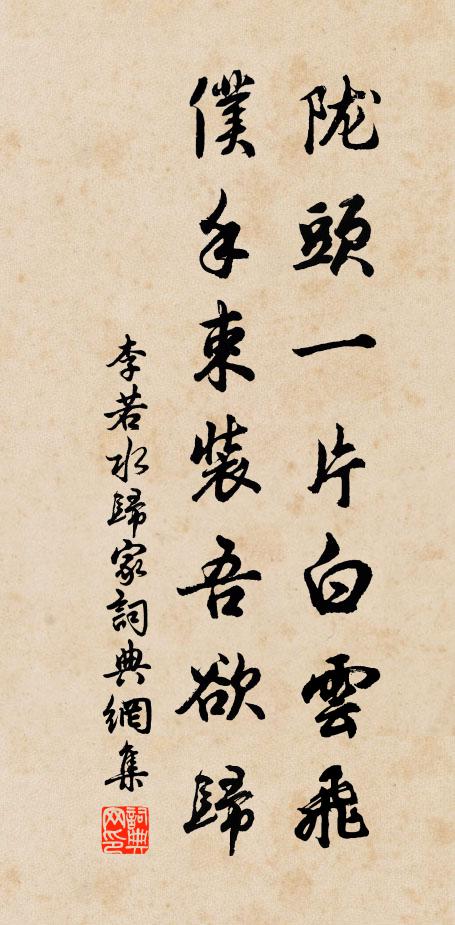 陇頭一片白雲飛
僕手束裝吾欲歸
李若水歸家詞典網集
詞典网印